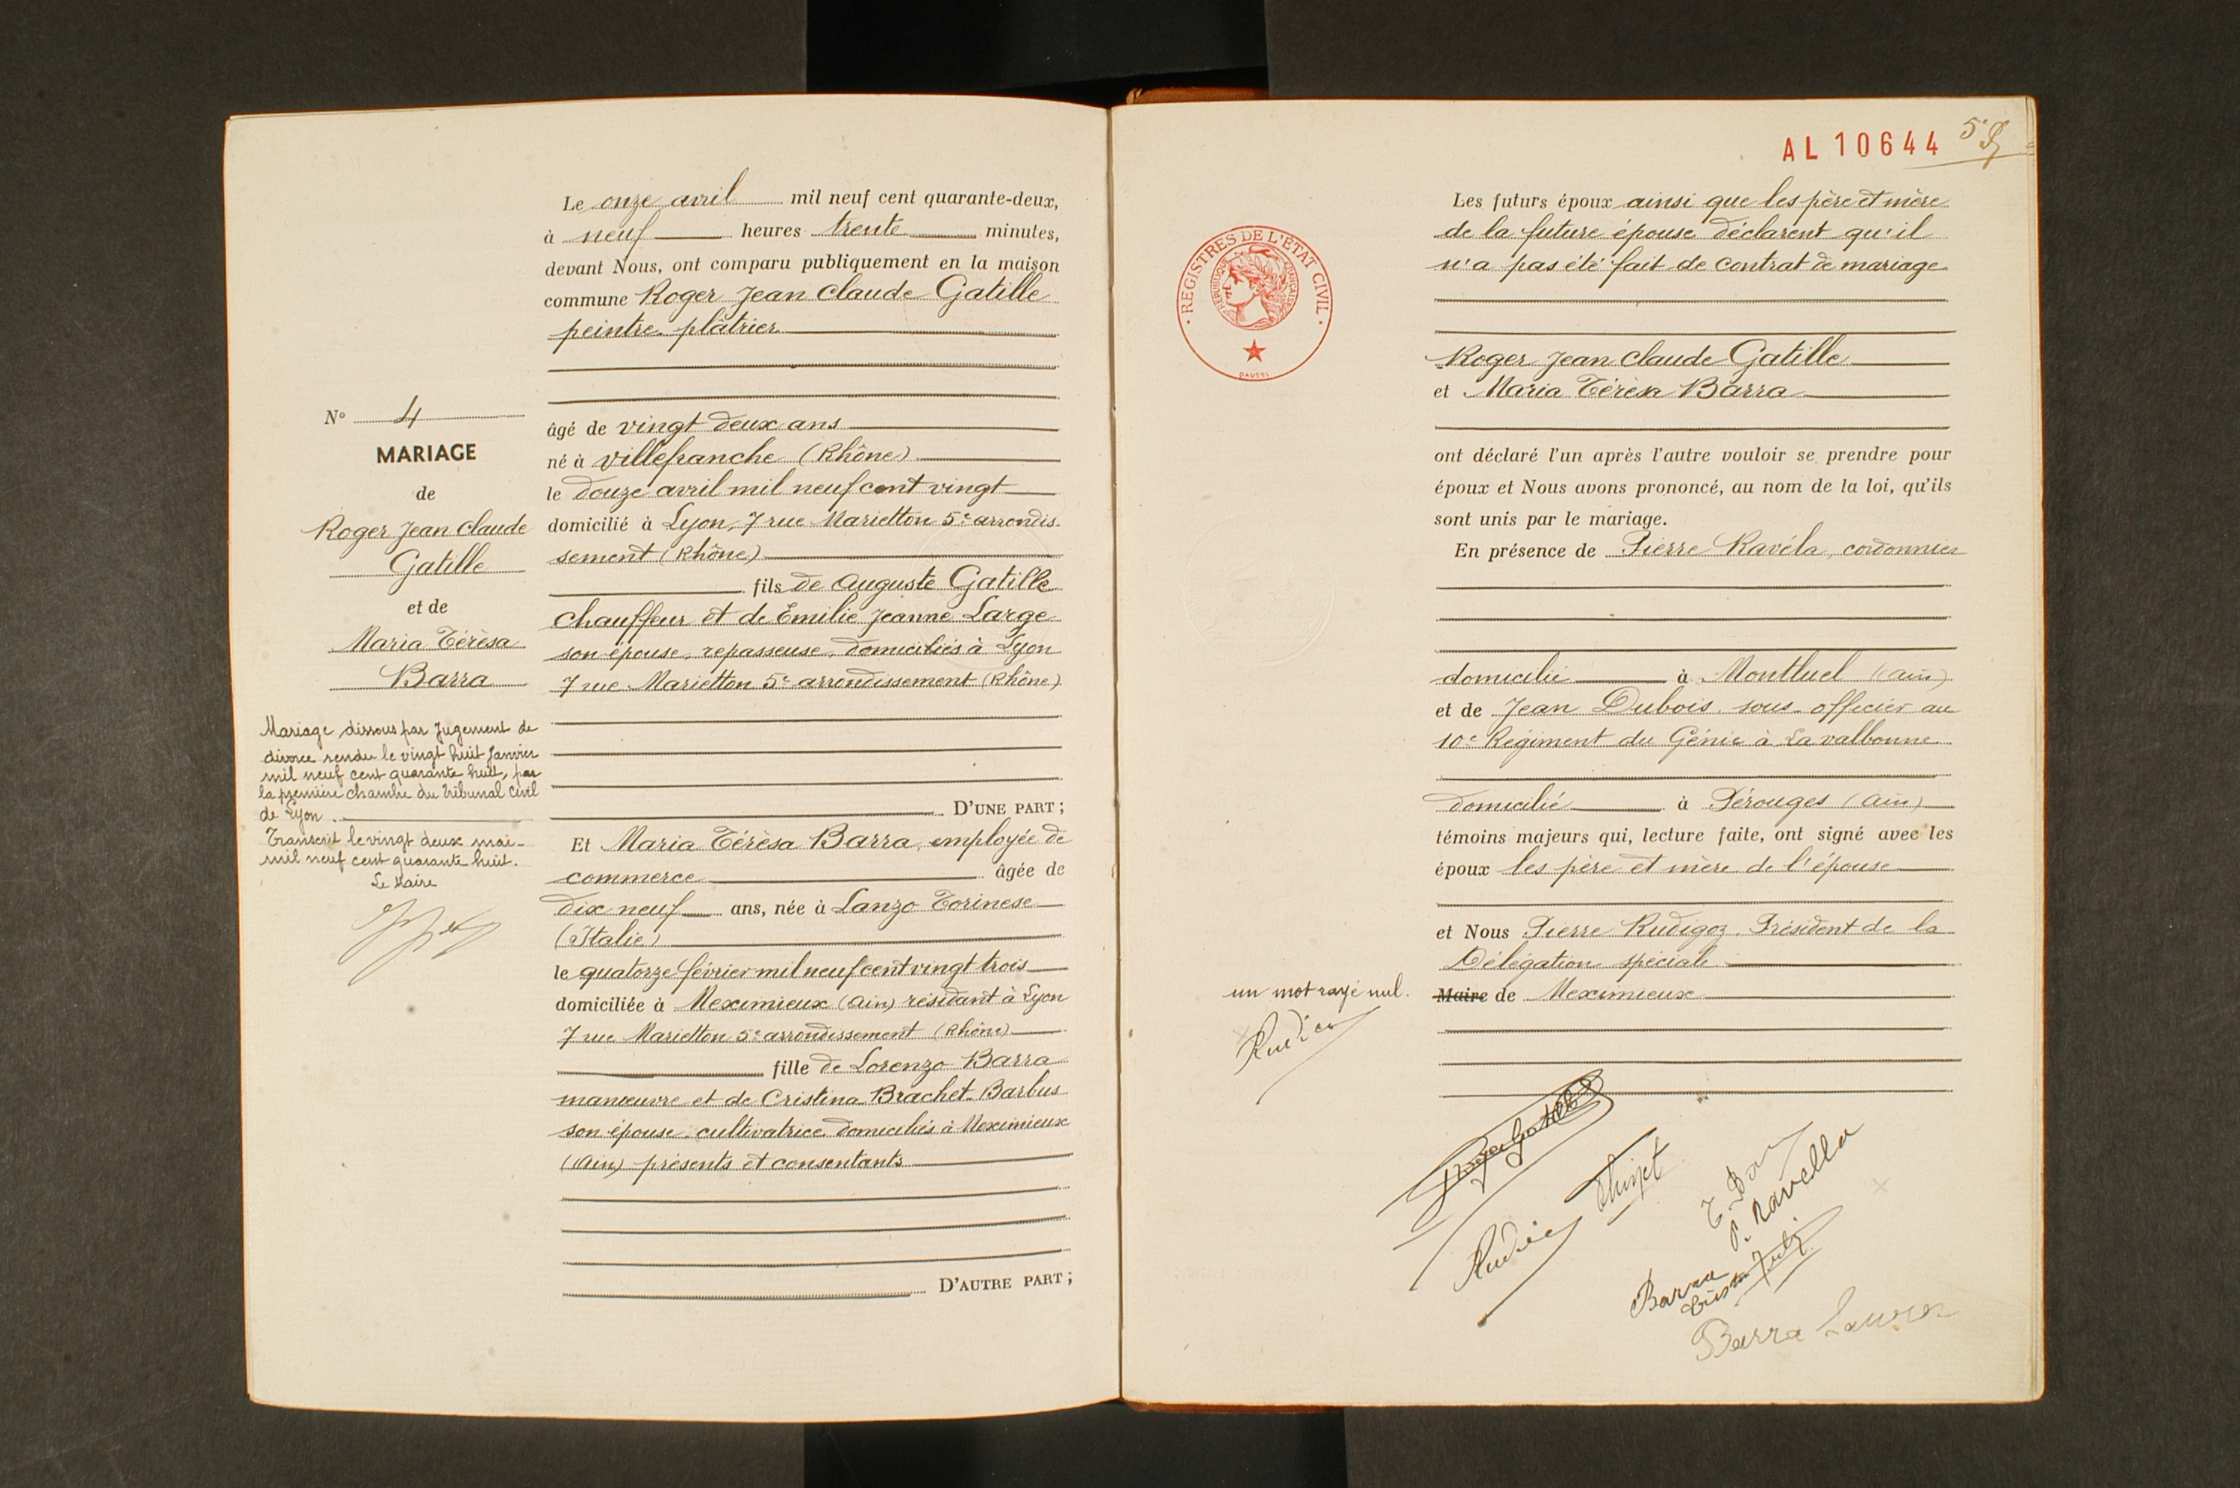 Le onze avril mil neuf cent quarante-deux,
à neuf heures trente minutes,
devant Nous, ont comparu publiquement en la maison
commune Roger Jean Claude Gatille
peintre plâtrier
N° 4
MARIAGE
de
Roger Jean Claude
Gatille
et de
Maria Térèsa
Barra
Mariage dissous par Jugement de
divorce rendu le vingt huit Janvier
mil neuf cent quarante huit, par
la première chambre du Tribunal Civil
de Lyon.
Transcrit le vingt deux mai
mil neuf cent quarante huit.
Le Maire
âgé de vingt deux ans
né à Villefranche (Rhône)
le douze avril mil neuf cent vingt
domicilié à Lyon, 7 rue Marietton 5e arrondis-
sement (Rhône)
fils de Auguste Gatille
chauffeur et de Emilie Jeanne Large
son épouse, repasseuse, domiciliés à Lyon
7 rue Marietton 5e arrondissement (Rhône)
D'UNE PART;
Et Maria Térèsa Barra, employée de
commerce âgée de
dix neuf ans, née à Lanzo Torinese
(Italie)
le quatorze février mil neuf cent vingt trois
domiciliée à Meximieux (Ain) résidant à Lyon
7 rue Marietton 5e arrondissement (Rhône)
fille de Lorenzo Barra
manœuvre et de Cristina Brachet-Barbus
son épouse, cultivatrice domiciliés à Meximieux
(Ain) présents et consentants
D'AUTRE PART;
AL 10644
REGISTRES DE L'ÉTAT CIVIL
RÉPUBLIQUE FRANÇAISE
Les futurs époux ainsi que les père et mère
de la future épouse déclarent qu'il
n'a pas été fait de contrat de mariage
Roger Jean Claude Gatille
et Maria Térèsa Barra
ont déclaré l'un après l'autre vouloir se prendre pour
époux et Nous avons prononcé, au nom de la loi, qu'ils
sont unis par le mariage.
En présence de Pierre Ravéla, cordonnier
domicilié à Montluel (Ain)
et de Jean Dubois sous-officier au
10e Régiment du Génie à La Valbonne
domicilié à Pérouges (Ain)
témoins majeurs qui, lecture faite, ont signé avec les
époux les père et mère de l'épouse
et Nous Pierre Rudigoz, Président de la
Délégation spéciale
Maire de Meximieux
un mot rayé nul.
P. Ravella
Barra
Barra